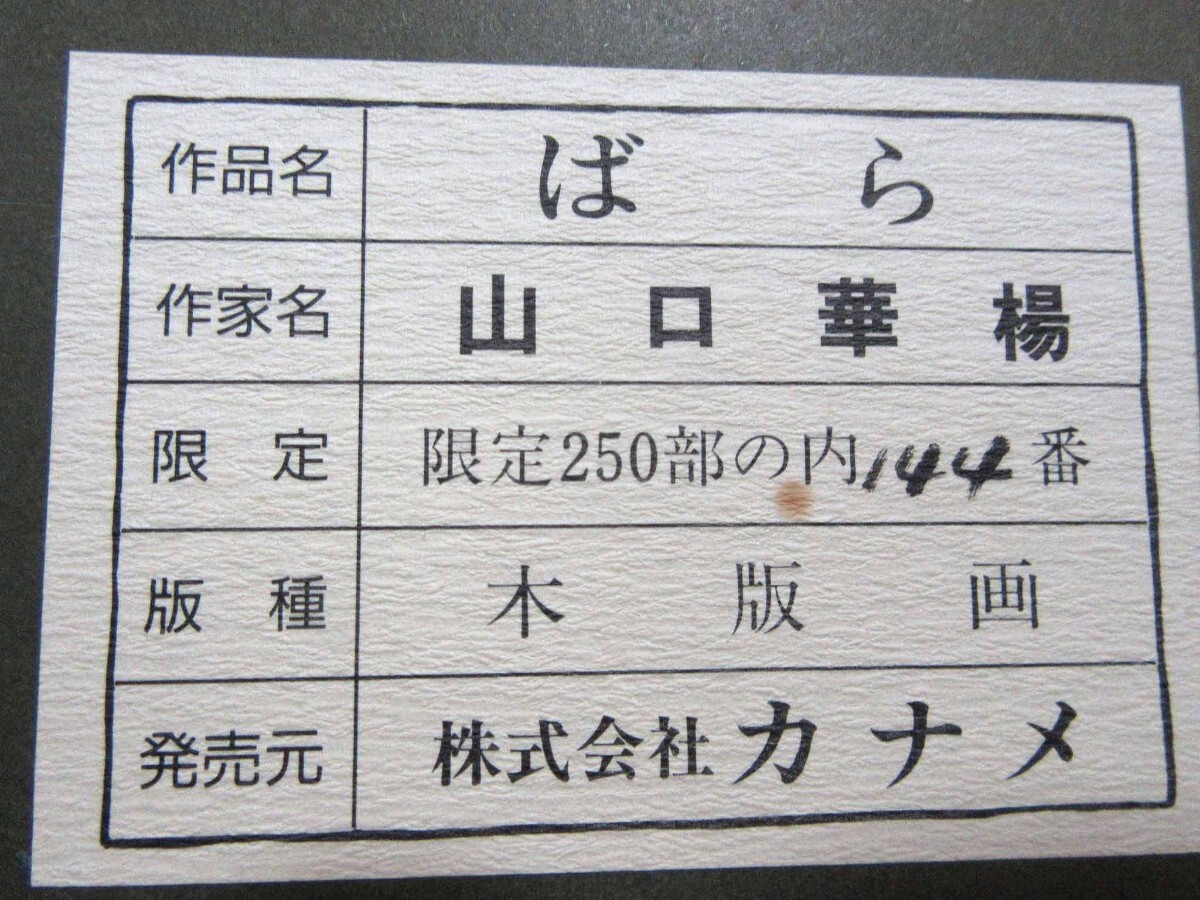 作品名 ばら
作家名 山口華楊
限定 限定250部の内144番
版種 木版画
発売元 株式会社カナメ